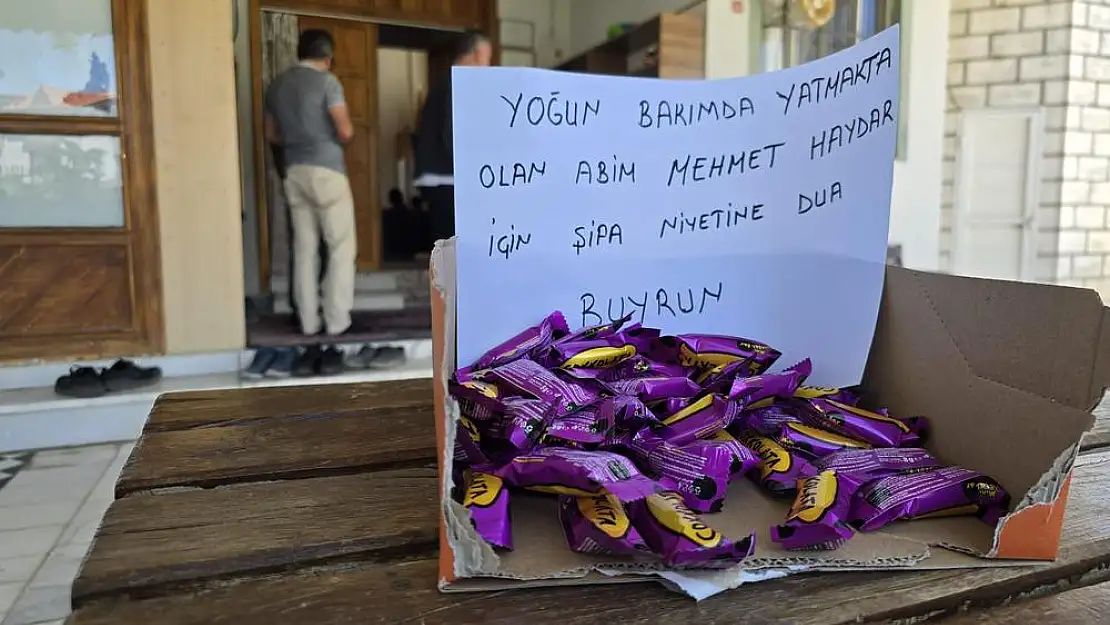 YOĞUN BAKIMDA YATMAKTA
OLAN ABİM MEHMET HAYDAR
İÇİN ŞİPA NİYETİNE DUA
BUYRUN